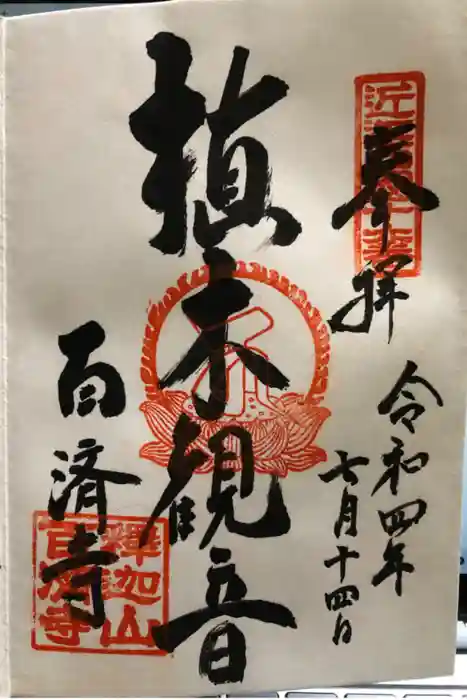 奉拝
令和四年
七月十四日
植木観音
百済寺
釋迦山
百済寺